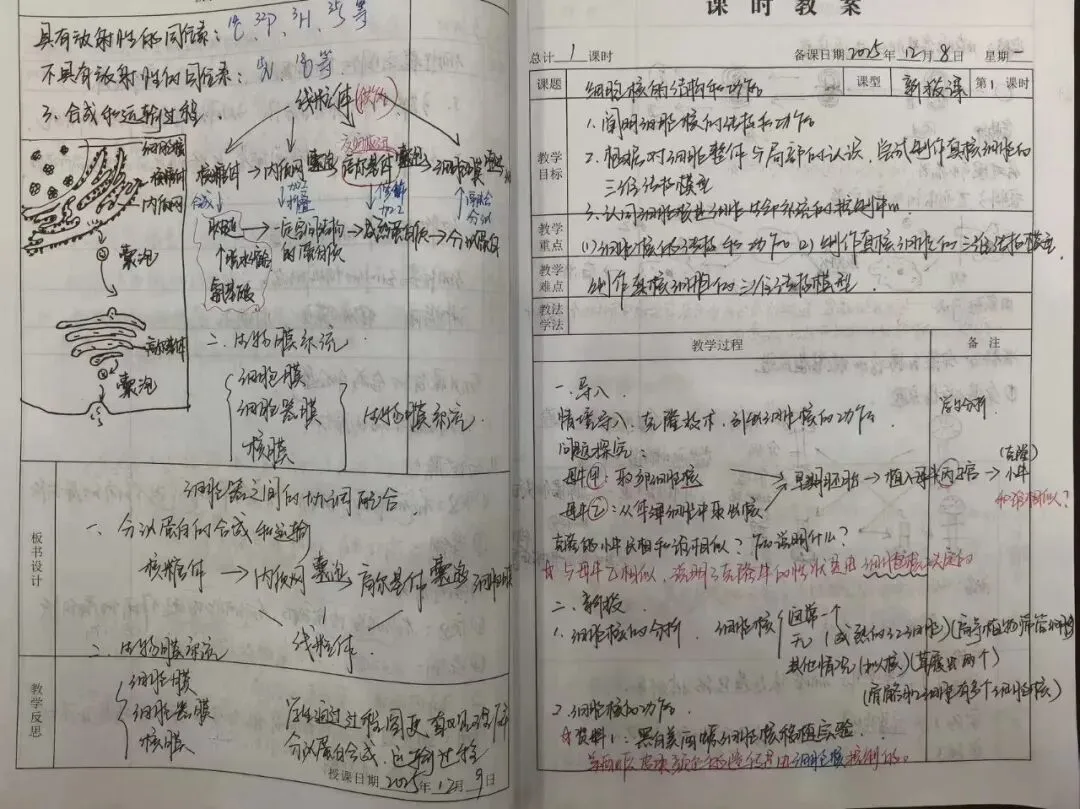 具有放射性的同位素：¹⁴C、³²P、³H、³⁵S等
不具有放射性的同位素：¹⁵N ¹⁸O等
3、合成和运输过程
线粒体(供能)
细胞核
核糖体
内质网
囊泡
高尔基体
囊泡
核糖体→内质网 囊泡 高尔基体 囊泡 细胞膜
合成
加工
折叠
加工
分泌
肽链→一定空间结构的蛋白质→成熟蛋白质→分泌蛋白
个
脱水缩合
氨基酸
二、生物膜系统
细胞膜
细胞器膜
核膜
生物膜系统
板书设计
细胞器之间的协调配合
一、分泌蛋白的合成和运输
核糖体→内质网 囊泡 高尔基体 囊泡 细胞膜
线粒体
二、生物膜系统
细胞膜
细胞器膜
核膜
教学反思
学生通过过程图更直观
分泌蛋白合成、运输过程
授课日期2025年12月9日
课时教案
总计1课时 备课日期2025年12月8日 星期一
课题 细胞核的结构和功能 课型 新授课 第1课时
教学目标
1、阐明细胞核的结构和功能
2、根据对细胞整体与局部的认识，尝试制作真核细胞的
三维结构模型
3、认同细胞核是细胞生命系统的控制中心
教学重点 (1)细胞核的结构和功能 (2)制作真核细胞的三维结构模型
教学难点 制作真核细胞的三维结构模型
教法学法
教学过程 备注
一、导入
情境导入，克隆技术，引出细胞核的功能
问题探究：
母牛甲：取卵细胞核
母牛乙：从体细胞中取出核
→早期胚胎→植入母牛丙子宫→(克隆)小牛
和谁相似？
克隆的小牛长相和谁相似？说明什么？
☆与母牛乙相似，说明了克隆牛的性状是由细胞核决定的
二、新授
1、细胞核的分布 细胞核
通常一个
无(成熟的红细胞)(高等植物筛管细胞)
其他情况(草履虫两个)
(骨骼肌细胞有多个细胞核)
2、细胞核的功能
☆资料1：黑白美西螈细胞核移植实验
美西螈皮肤颜色的遗传是由细胞核控制的。